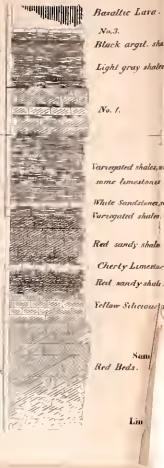 Basaltic Lava.
No. 3.
Black argil. sha
Light gray shales
No. 1.
Variegated shales,
some limestones
White Sandstones,
Variegated shales.
Red sandy shale
Cherty Limestone
Red sandy shal
Yellow Siliceous
San
Red Beds.
Lim